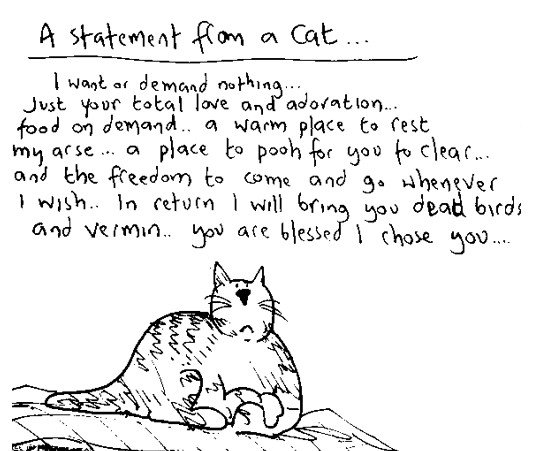 A statement from a Cat...
I want or demand nothing...
Just your total love and adoration...
food on demand.. a warm place to rest
my arse... a place to pooh for you to clear...
and the freedom to come and go whenever
I wish.. In return I will bring you dead birds
and vermin.. you are blessed I chose you....